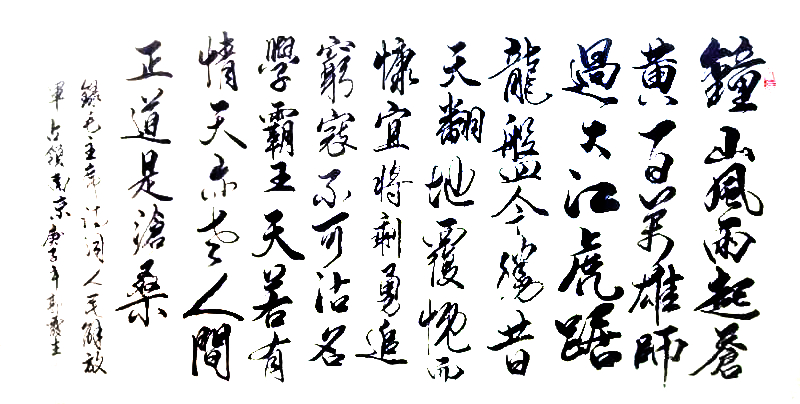 鐘山風雨起蒼
黄百萬雄師
過大江虎踞
龍盤今勝昔
天翻地覆慨而
慷宜將剩勇追
窮寇不可沽名
學霸王天若有
情天亦老人間
正道是滄桑
錄毛主席詩詞人民解放
軍占領南京庚子年